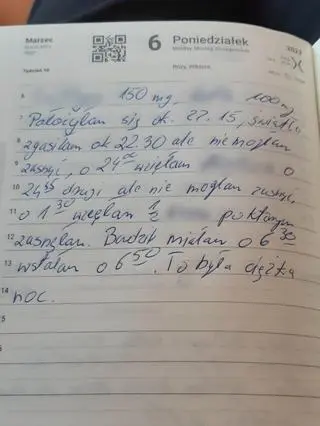 Marzec
Tydzień 10
6
Poniedziałek
2023
150 mg, 100 mg
7 Położyłam się ok. 22.15, światło
8 zgasiłam ok 22.30 ale nie mogłam
9 zasnąć, o 24 wzięłam o
10 24 drugi ale nie mogłam zasnąć,
11 o 1 30 wzięłam 1/2 po którym
12 zasnęłam. Budzik miałam o 6 30
13 wstałam o 6 50. To była ciężka
14 noc.
15